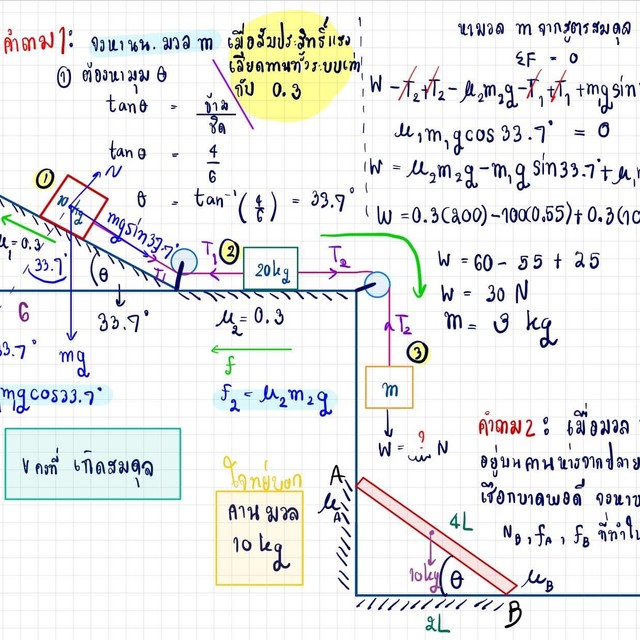 คำถาม 1: จงหา นน. มวล m เมื่อสัมประสิทธิ์แรง
เสียดทานทั้งระบบเท่า
กับ 0.3
① ต้องหามุม θ
tanθ = ข้าม
ชิด
tanθ = 4
6
θ = tan⁻¹(4/6) = 33.7°
หามวล m จากสูตรสมดุล
ΣF = 0
W - T₂ + T₂ - μ₂m₂g - T₁ + T₁ + m₁g sin
μ₁m₁g cos 33.7° = 0
W = μ₂m₂g - m₁g sin 33.7° + μ₁
W = 0.3(200) - 100(0.55) + 0.3(10
W = 60 - 55 + 25
W = 30 N
m = 3 kg
①
N
10 kg
mg sin 33.7°
μ₁ = 0.3
33.7°
θ
T₁
T₁
②
20 kg
T₂
6
33.7°
μ₂ = 0.3
T₂
3.7°
mg
f
③
m₁g cos 33.7°
f₂ = μ₂m₂g
m
W = ? N
v คงที่ เกิดสมดุล
โจทย์บอก
คาน มวล
10 kg
คำถาม 2: เมื่อมวล
อยู่บนคานห่างจากปลาย
เชือกขาดพอดี จงหา
N_B, f_A, f_B ที่ทำให้
A
μ_A
4L
10 kg
θ
μ_B
2L
B